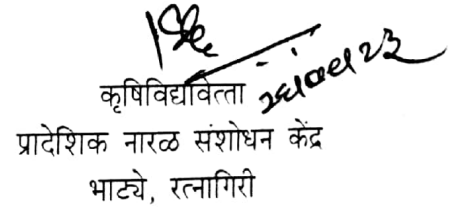 कृषिविद्यावेत्ता
प्रादेशिक नारळ संशोधन केंद्र
भाट्ये, रत्नागिरी